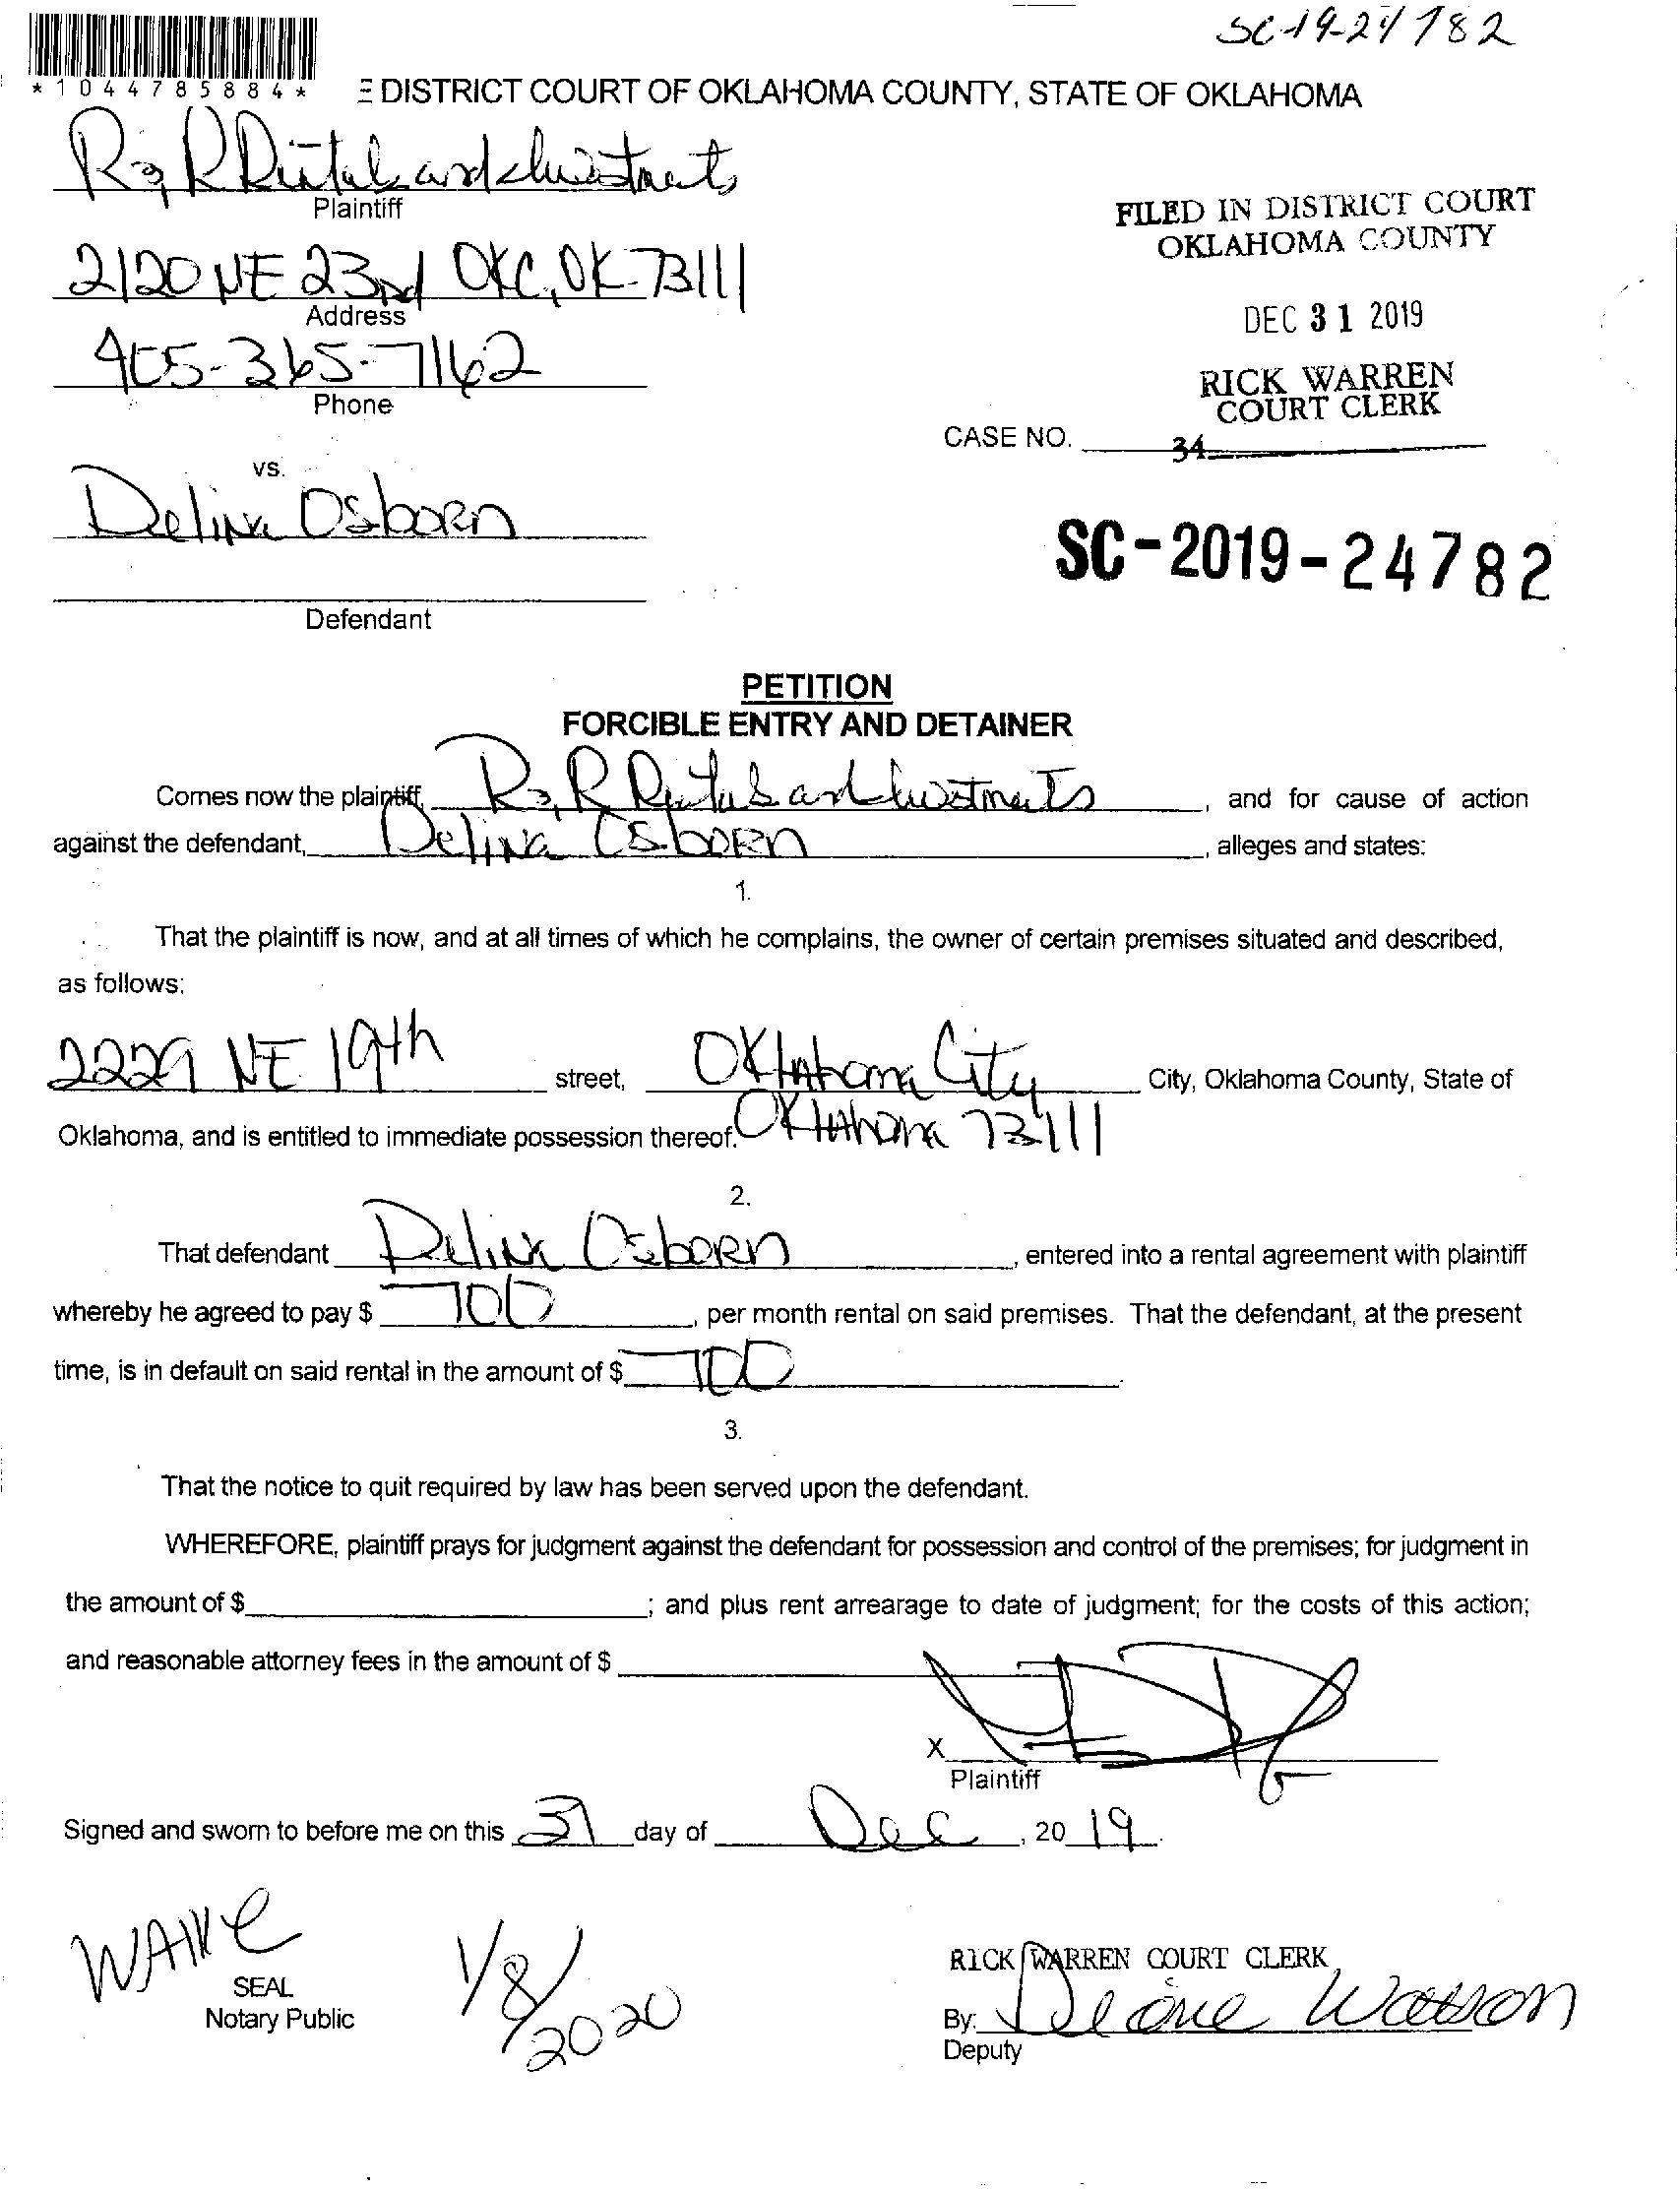 SC-19-24782
*1044785884*
DISTRICT COURT OF OKLAHOMA COUNTY, STATE OF OKLAHOMA
R & R Rentals and Investments
Plaintiff
FILED IN DISTRICT COURT
OKLAHOMA COUNTY
2120 NE 23rd OKC, OK 73111
Address
DEC 31 2019
405-365-7162
Phone
RICK WARREN
COURT CLERK
CASE NO.
34
vs.
Delina Osborn
SC-2019-24782
Defendant
PETITION
FORCIBLE ENTRY AND DETAINER
Comes now the plaintiff, R & R Rentals and Investments, and for cause of action
against the defendant, Delina Osborn, alleges and states:
1.
That the plaintiff is now, and at all times of which he complains, the owner of certain premises situated and described,
as follows:
2229 NE 19th street, Oklahoma City City, Oklahoma County, State of
Oklahoma, and is entitled to immediate possession thereof. Oklahoma 73111
2.
That defendant Delina Osborn, entered into a rental agreement with plaintiff
whereby he agreed to pay $ 700, per month rental on said premises. That the defendant, at the present
time, is in default on said rental in the amount of $ 700
3.
That the notice to quit required by law has been served upon the defendant.
WHEREFORE, plaintiff prays for judgment against the defendant for possession and control of the premises; for judgment in
the amount of $ ; and plus rent arrearage to date of judgment; for the costs of this action;
and reasonable attorney fees in the amount of $
X
Plaintiff
Signed and sworn to before me on this 31 day of Dec, 20 19.
WAIVE
1/8/2020
SEAL
Notary Public
RICK WARREN COURT CLERK
By: Diane Watson
Deputy